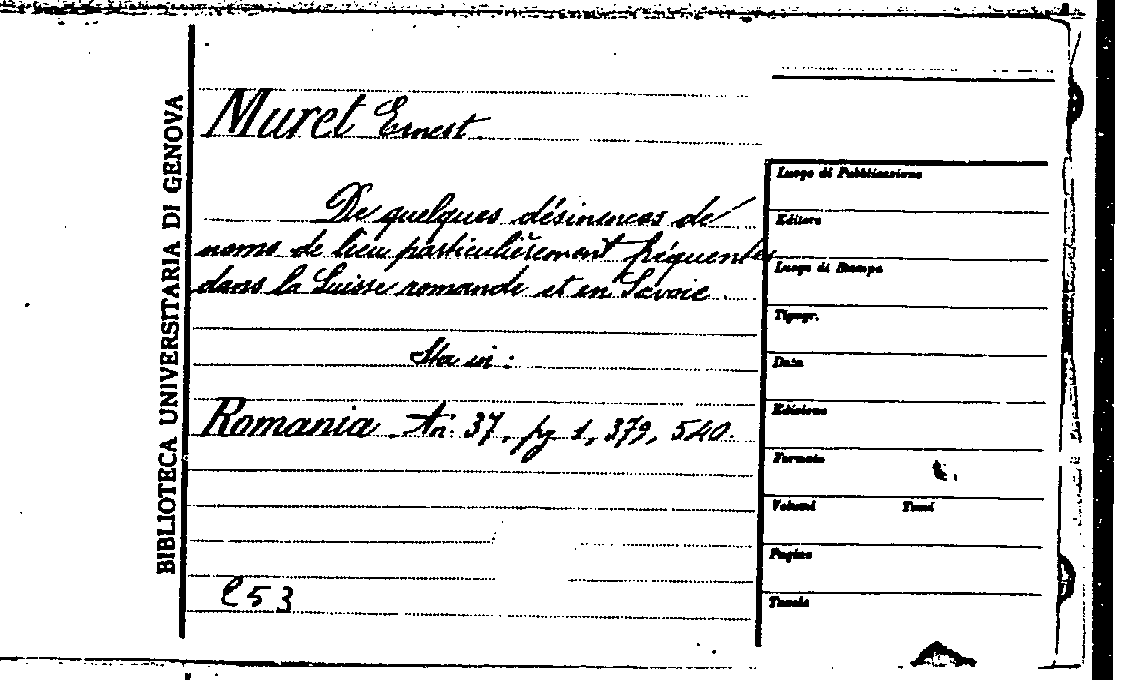 BIBLIOTECA UNIVERSITARIA DI GENOVA
Muret Ernest
De quelques désinences de
noms de lieu particulièrement fréquentes
dans la Suisse romande et en Savoie.
Sta in:
Romania. An. 37, pg 1, 379, 540.
Luogo di Pubblicazione
Editore
Luogo di Stampa
Tipogr.
Data
Edizione
Formato
Volumi Tomi
Pagine
Tavole